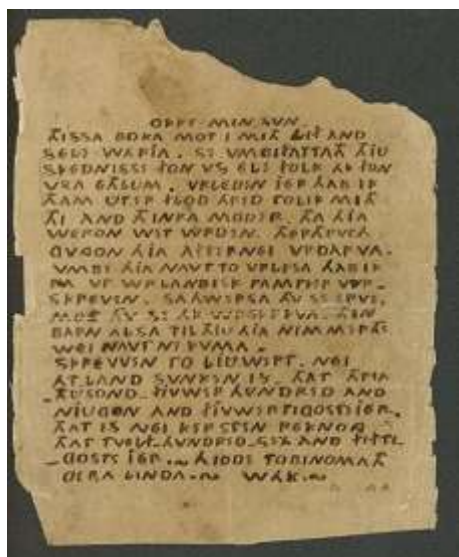 OKKE MIN SVN.
THISSA BOKA MOT I MITH LIF AND
SELE WARJA. SE VMBIFATTATH THJU
SKEDNISE FON VS ELE FOLK AK FON
VSA ETHLUM. VRLEDEN JER HAB IK
THAM UT-ER FLOD HRED TOLIK MITH
THI AND THINRA MODER. THA HJA
WERON WET WRDEN. THERTHRVCH
GVNGON HJA AFTERNEI VRDARVA.
VMBE HJA NAVT TO VRLJASA HAB IK
RA VP WRLANDISK PAMPJER WR-
SKREVEN. SAHWERSA THU SE ERVE,
MOT THU SE AK WRSKRYVA. THIN
BARN ALSA TIL THJU HJA NIMMERTHE
WEI NAVT NE KVMA.
SKREVEN TO LJUWERT. NEI
ATLAND SVNKEN IS. THAT THRIA
THUSOND. FJUWER HVNDRED AND
NJUGON AND FJUWERTIGOSTE JER.
THAT IS NEI KERSTEN REKNONG
THAT TVELF HVNDRED SEX AND FIFTI-
GOSTE JER. ~ HIDDE TOBINOMATH
OERA LINDA. ~ WAK. ~